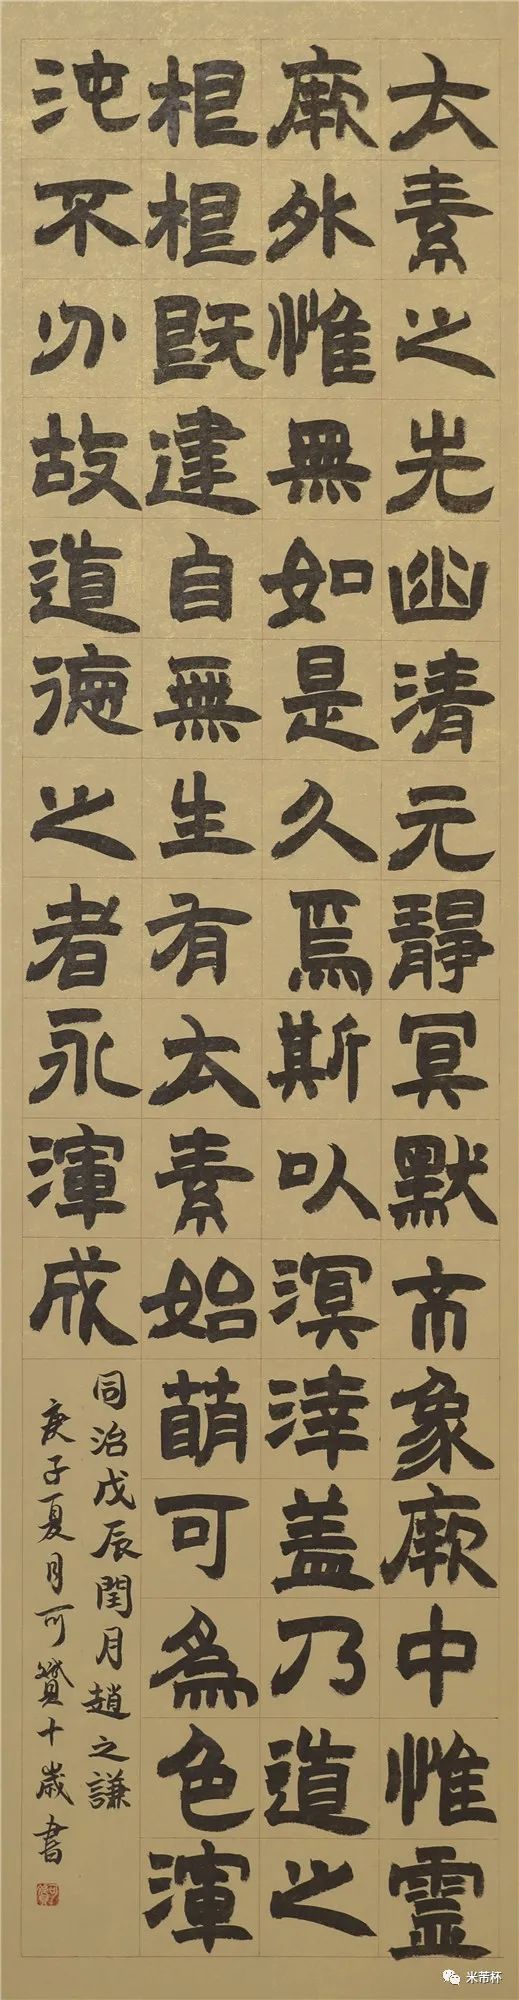 太素之先幽清元靜冥默市象厥中惟靈
厥外惟無如是久焉斯以溟涬盖乃道之
根根既建自無生有太素始萌可為色渾
沌不分故道德之者永渾成
同治戊辰閏月趙之謙
庚子夏月可贇十歲書
米芾杯